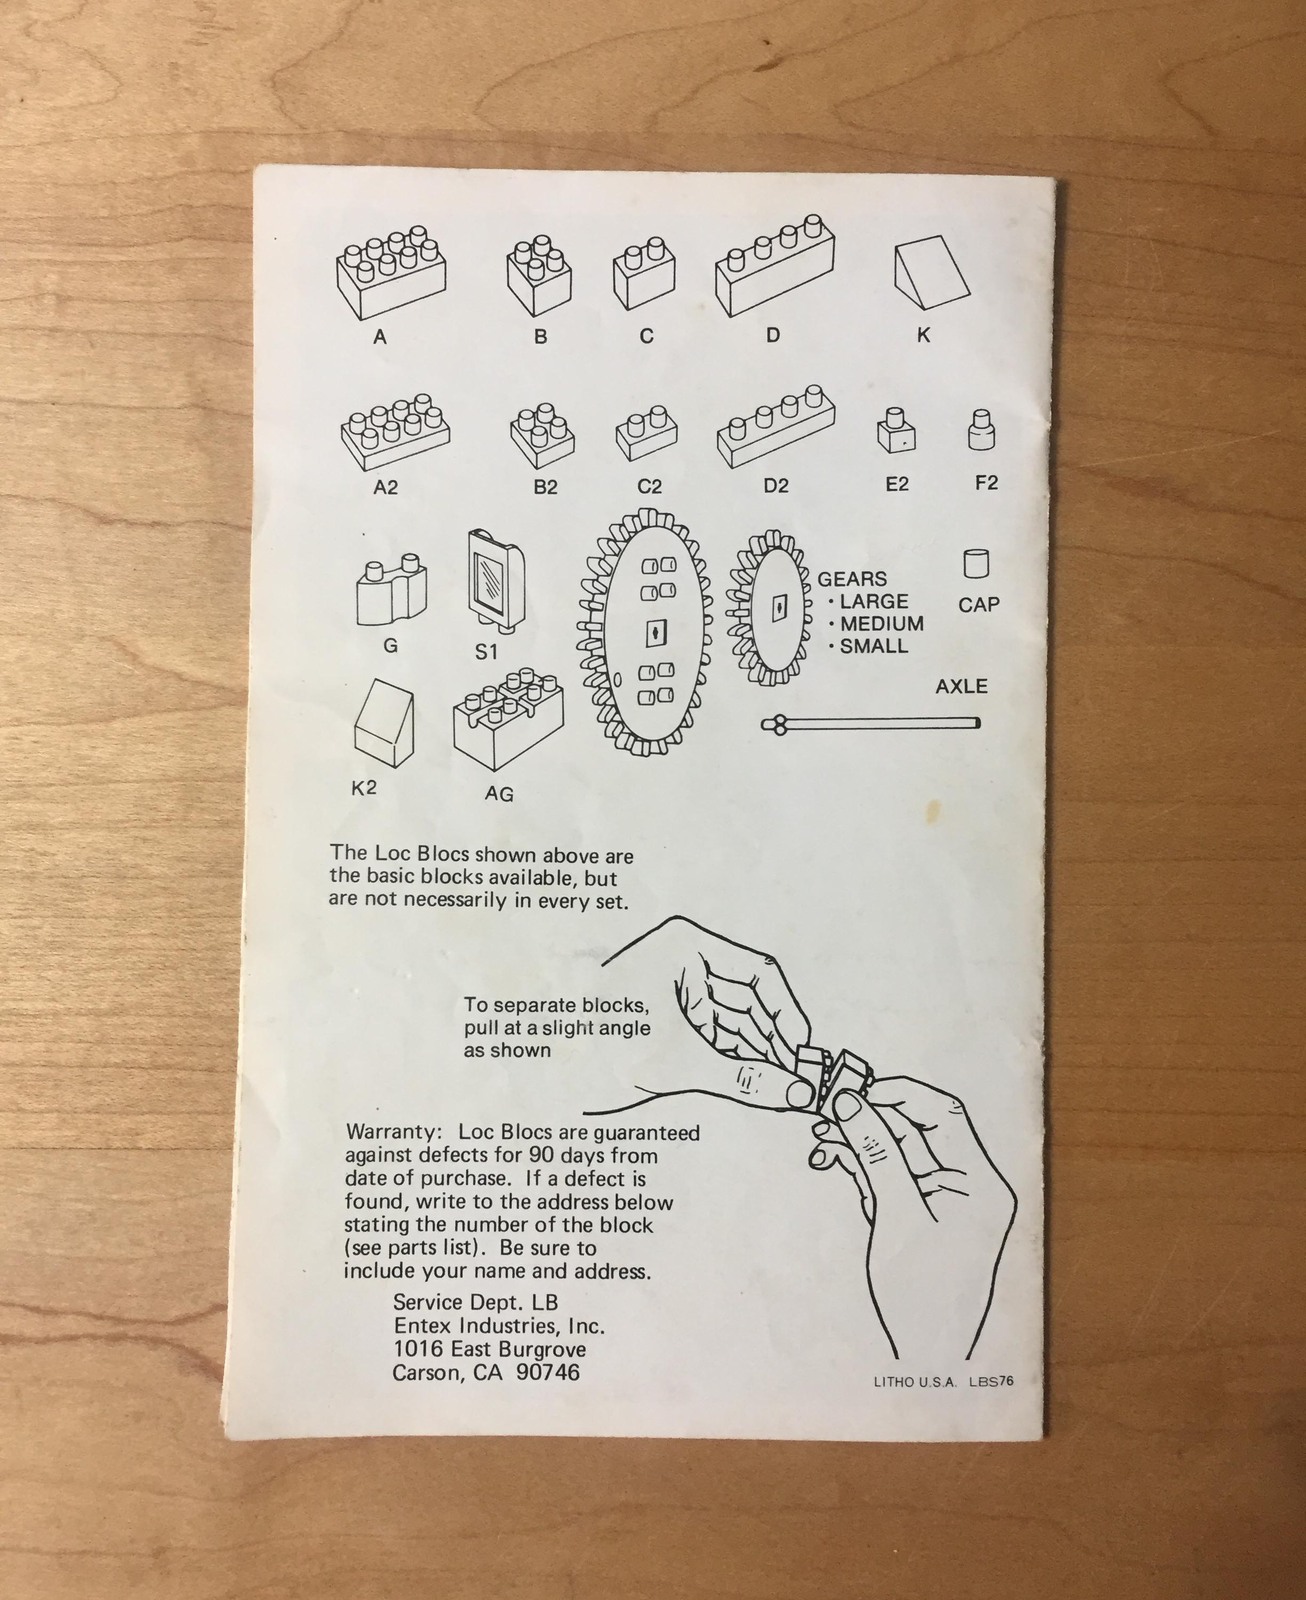 A B C D K
A2 B2 C2 D2 E2 F2
GEARS
• LARGE
• MEDIUM
• SMALL
CAP
G S1
AXLE
K2 AG
The Loc Blocs shown above are
the basic blocks available, but
are not necessarily in every set.
To separate blocks,
pull at a slight angle
as shown
Warranty: Loc Blocs are guaranteed
against defects for 90 days from
date of purchase. If a defect is
found, write to the address below
stating the number of the block
(see parts list). Be sure to
include your name and address.
Service Dept. LB
Entex Industries, Inc.
1016 East Burgrove
Carson, CA 90746
LITHO U.S.A. LBS76